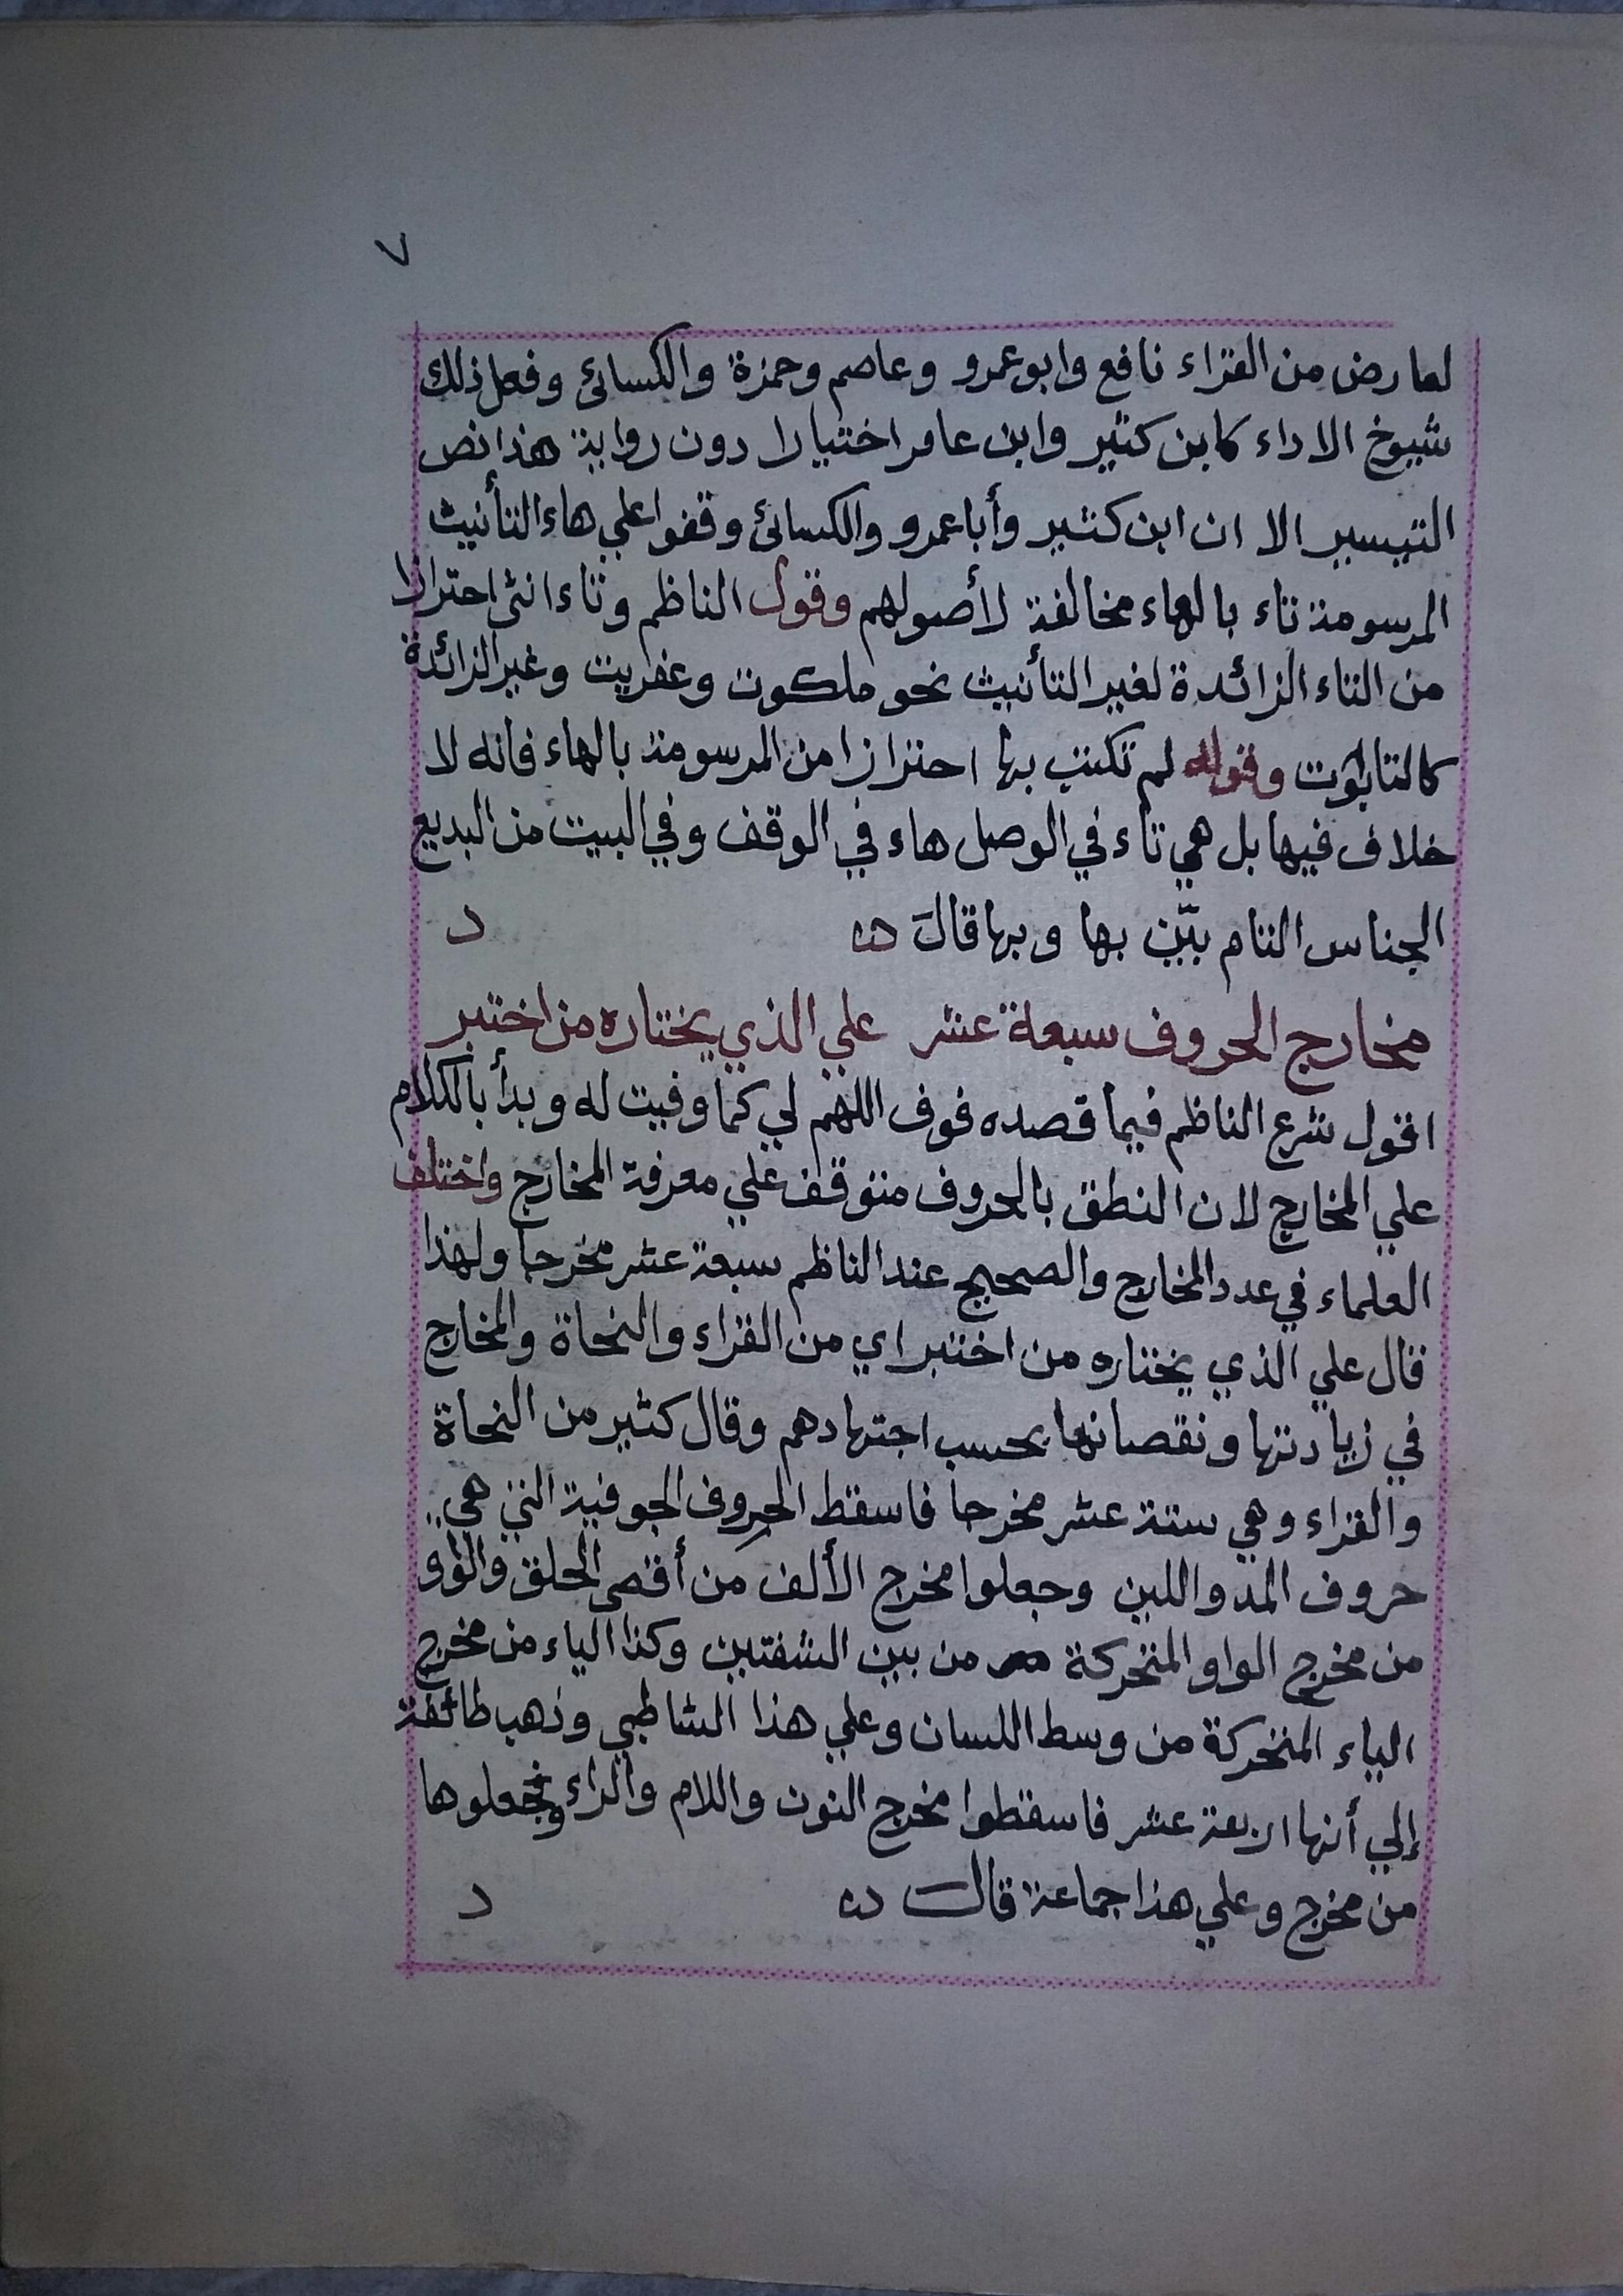 ٧
لعارض من القراء نافع وابو عمرو وعاصم وحمزة والكسائئ وفعل ذلك
شيوخ الاداء كابن كثير وابن عامر اختيارا دون رواية هذا نص
التيسير الا ان ابن كثير وأبا عمرو والكسائئ وقفوا علي هاء التأنيث
المرسومة تاء بالهاء مخالفة لأصولهم وقول الناظم وتاء انثى احترازا
من التاء الزائدة لغير التأنيث نحو ملكوت وعفريت وغير الزائدة
كالتابوت وقوله لم تكتب بها احترازا من المرسومة بالهاء فانه لا
خلاف فيها بل هي تاء في الوصل هاء في الوقف وفي البيت من البديع
الجناس التام بيّن بها وبها قالَ
مخارج الحروف سبعة عشر علي الذي يختاره من اختبر
اقول شرع الناظم فيما قصده فوف اللهم لي كما وفيت له وبدأ بالكلام
علي المخارج لان النطق بالحروف متوقف علي معرفة المخارج واختلف
العلماء في عدد المخارج والصحيح عند الناظم سبعة عشر مخرجا ولهذا
قال علي الذي يختاره من اختبر اي من القراء والنحاة والمخارج
في زيادتها ونقصانها بحسب اجتهادهم وقال كثير من النحاة
والقراء وهي ستة عشر مخرجا فاسقط الحروف الجوفية التي هي
حروف المد واللين وجعلوا مخرج الألف من أقصى الحلق والواو
من مخرج الواو المتحركة من بين الشفتين وكذا الياء من مخرج
الياء المتحركة من وسط اللسان وعلي هذا الشاطبي وذهب طائفة
إلي أنها اربعة عشر فاسقطوا مخرج النون واللام والراء وجعلوها
من مخرج وعلي هذا جماعة قال